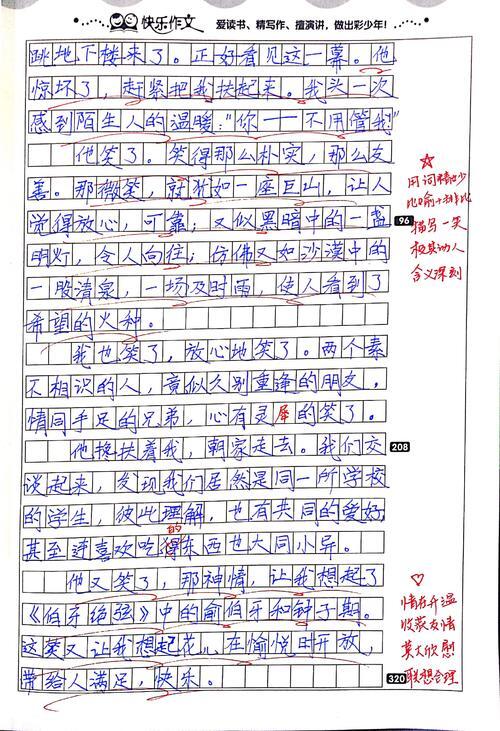 快乐作文 爱读书、精写作、擅演讲，做出彩少年！
跳地下楼来了。正好看见这一幕。他
惊坏了，赶紧把我扶起来。我头一次
感到陌生人的温暖："你——不用管我"
他笑了。笑得那么朴实，那么友
善。那微笑，就犹如一座巨山，让人
觉得放心，可靠；又似黑暗中的一盏
96
明灯，令人向往；仿佛又如沙漠中的
一股清泉，一场及时雨，使人看到了
希望的火种。
用词精妙
比喻+排比
描写一笑
极其动人
含义深刻
我也笑了，放心地笑了。两个素
不相识的人，竟似久别重逢的朋友，
情同手足的兄弟，心有灵犀的笑了。
他搀扶着我，朝家走去。我们交
208
谈起来，发现我们居然是同一所学校
的学生，彼此理解，也有共同的爱好，
的
甚至连喜欢吃得东西也大同小异。
他又笑了，那神情，让我想起了
《伯牙绝弦》中的俞伯牙和钟子期。
这笑又让我想起花，在愉悦中开放，
带给人满足，快乐。
320
情在升温
收获友情
莫大欣慰
联想合理